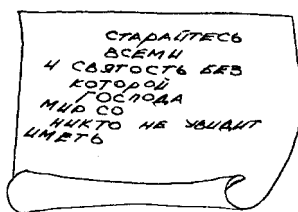 СТАРАЙТЕСЬ
ВСЕМИ
И СВЯТОСТЬ БЕЗ
КОТОРОЙ
ГОСПОДА
МИР СО
НИКТО НЕ УВИДИТ
ИМЕТЬ